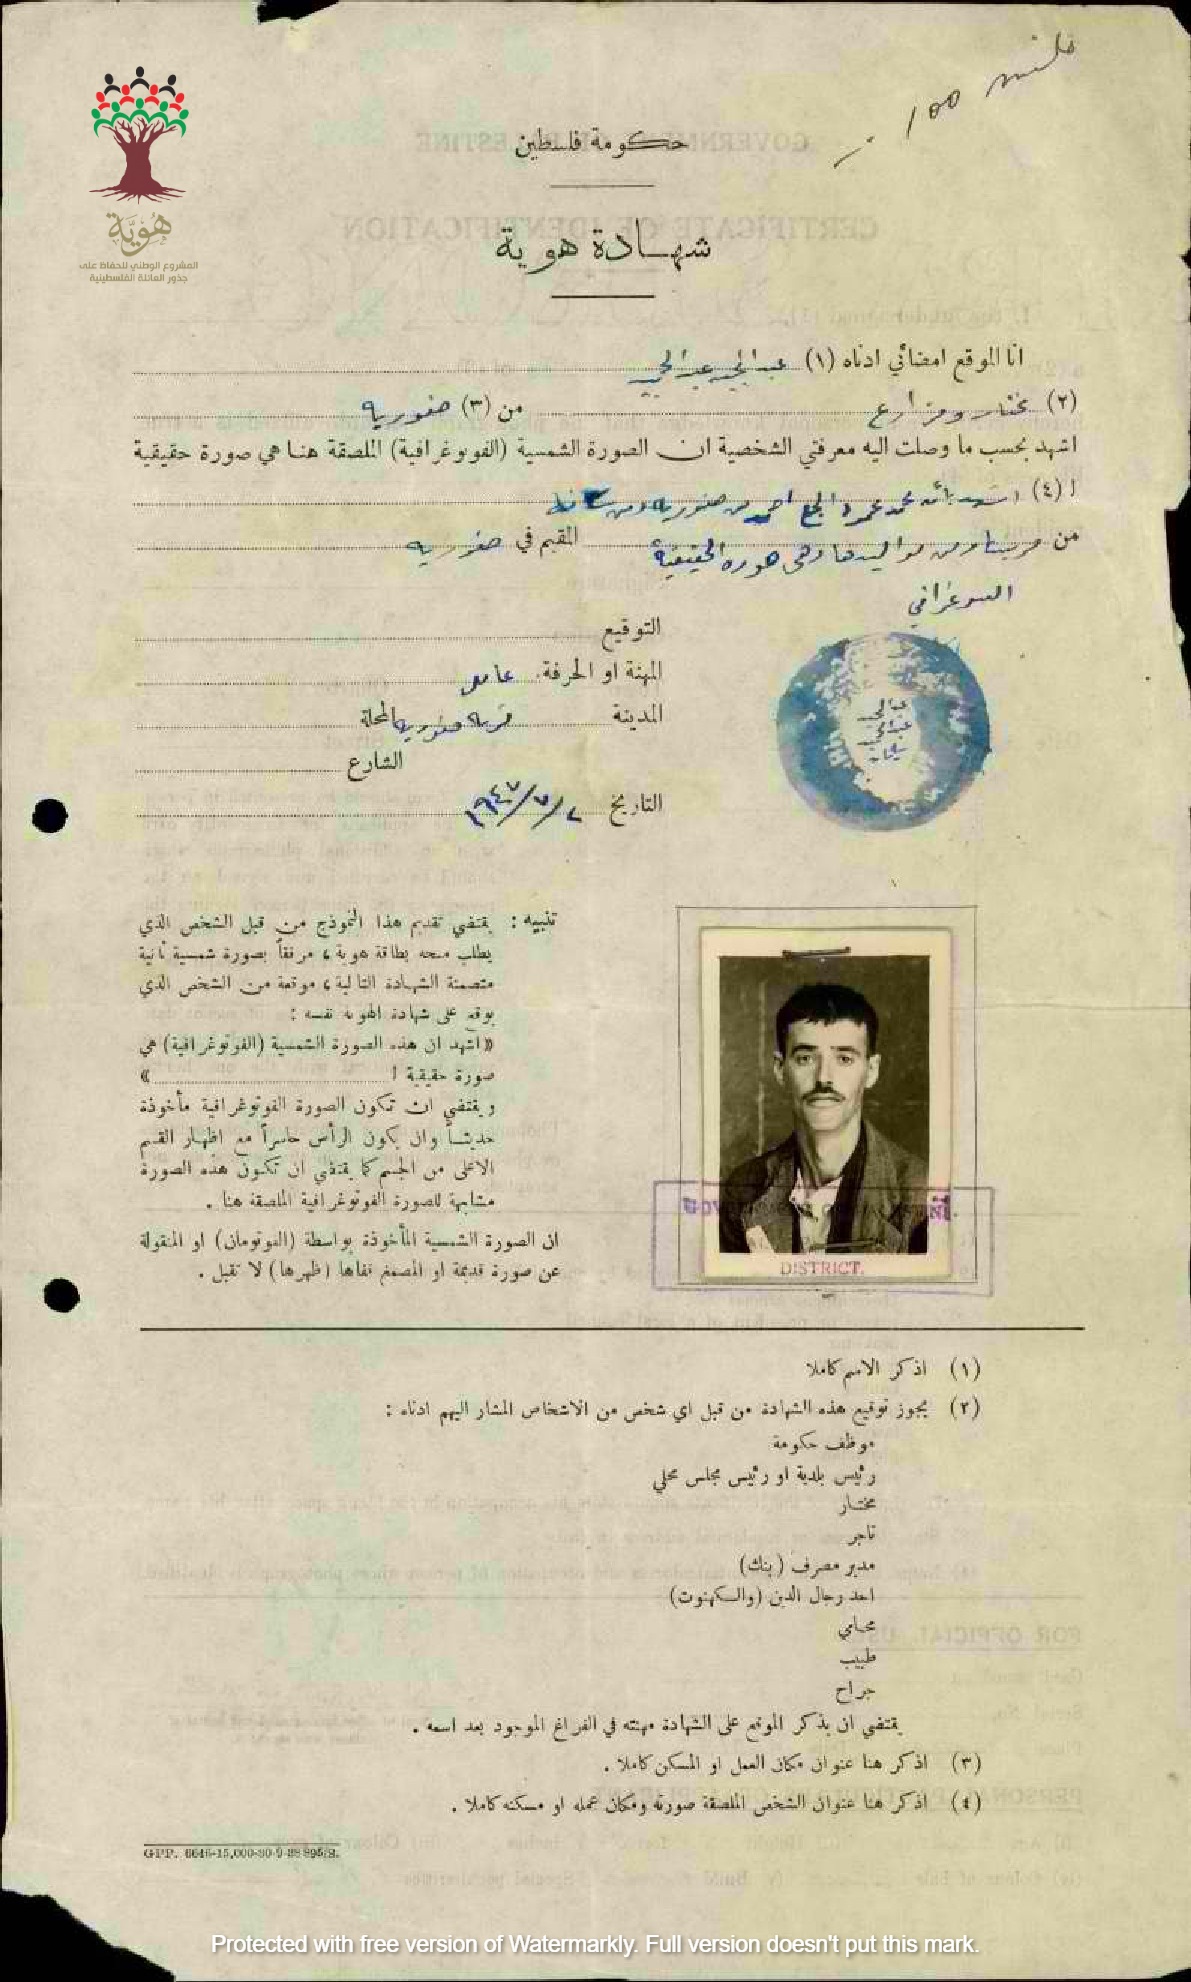 فلسطين
100
حكومة فلسطين
هُوِيَّة
المشروع الوطني للحفاظ على
جذور العائلة الفلسطينية
شهادة هوية
انا الموقع امضائي ادناه (١) عبد المجيد عبد المجيد
(٢) مختار ومزارع من (٣) صفوريه
اشهد بحسب ما وصلت اليه معرفتي الشخصية ان الصورة الشمسية (الفوتوغرافية) الملصقة هنا هي صورة حقيقية
ا (٤) اشهد بأن محمد احمد من صفوريه ومن
من قريتنا ومن مواليدها وهي صوره الحقيقية المقيم في صفوريه
التوقيع
المهنة او الحرفة. عامل
المدينة قريه صفوريه المحلة
الشارع
التاريخ ٢/٧/١٩٤٧
تنبيه : يقتضي تقديم هذا النموذج من قبل الشخص الذي
يطلب منحه بطاقة هوية، مرفقاً بصورة شمسية ثانية
متضمنة الشهادة التالية، موقعة من الشخص الذي
يوقع على شهادة الهوية نفسه :
«اشهد ان هذه الصورة الشمسية (الفوتوغرافية) هي
صورة حقيقية ا »
ويقتضي ان تكون الصورة الفوتوغرافية مأخوذة
حديثاً وان يكون الرأس حاسراً مع اظهار القسم
الاعلى من الجسم كما يقتضي ان تكون هذه الصورة
مشابهة للصورة الفوتوغرافية الملصقة هنا .
ان الصورة الشمسية المأخوذة بواسطة (الفوتومان) او المنقولة
عن صورة قديمة او المصمغ قفاها (ظهرها) لا تقبل .
GOVERNMENT OF PALESTINE.
DISTRICT.
(١) اذكر الاسم كاملا
(٢) يجوز توقيع هذه الشهادة من قبل اي شخص من الاشخاص المشار اليهم ادناه :
موظف حكومة
رئيس بلدية او رئيس مجلس محلي
مختار
تاجر
مدير مصرف (بنك)
احد رجال الدين (والكهنوت)
محامي
طبيب
جراح
يقتضي ان يذكر الموقع على الشهادة مهنته في الفراغ الموجود بعد اسمه .
(٣) اذكر هنا عنوان مكان العمل او المسكن كاملا .
(٤) اذكر هنا عنوان الشخص الملصقة صورته ومكان عمله او مسكنه كاملا .
GPP. 6646-15,000-30-9-38 895/S.
Protected with free version of Watermarkly. Full version doesn't put this mark.